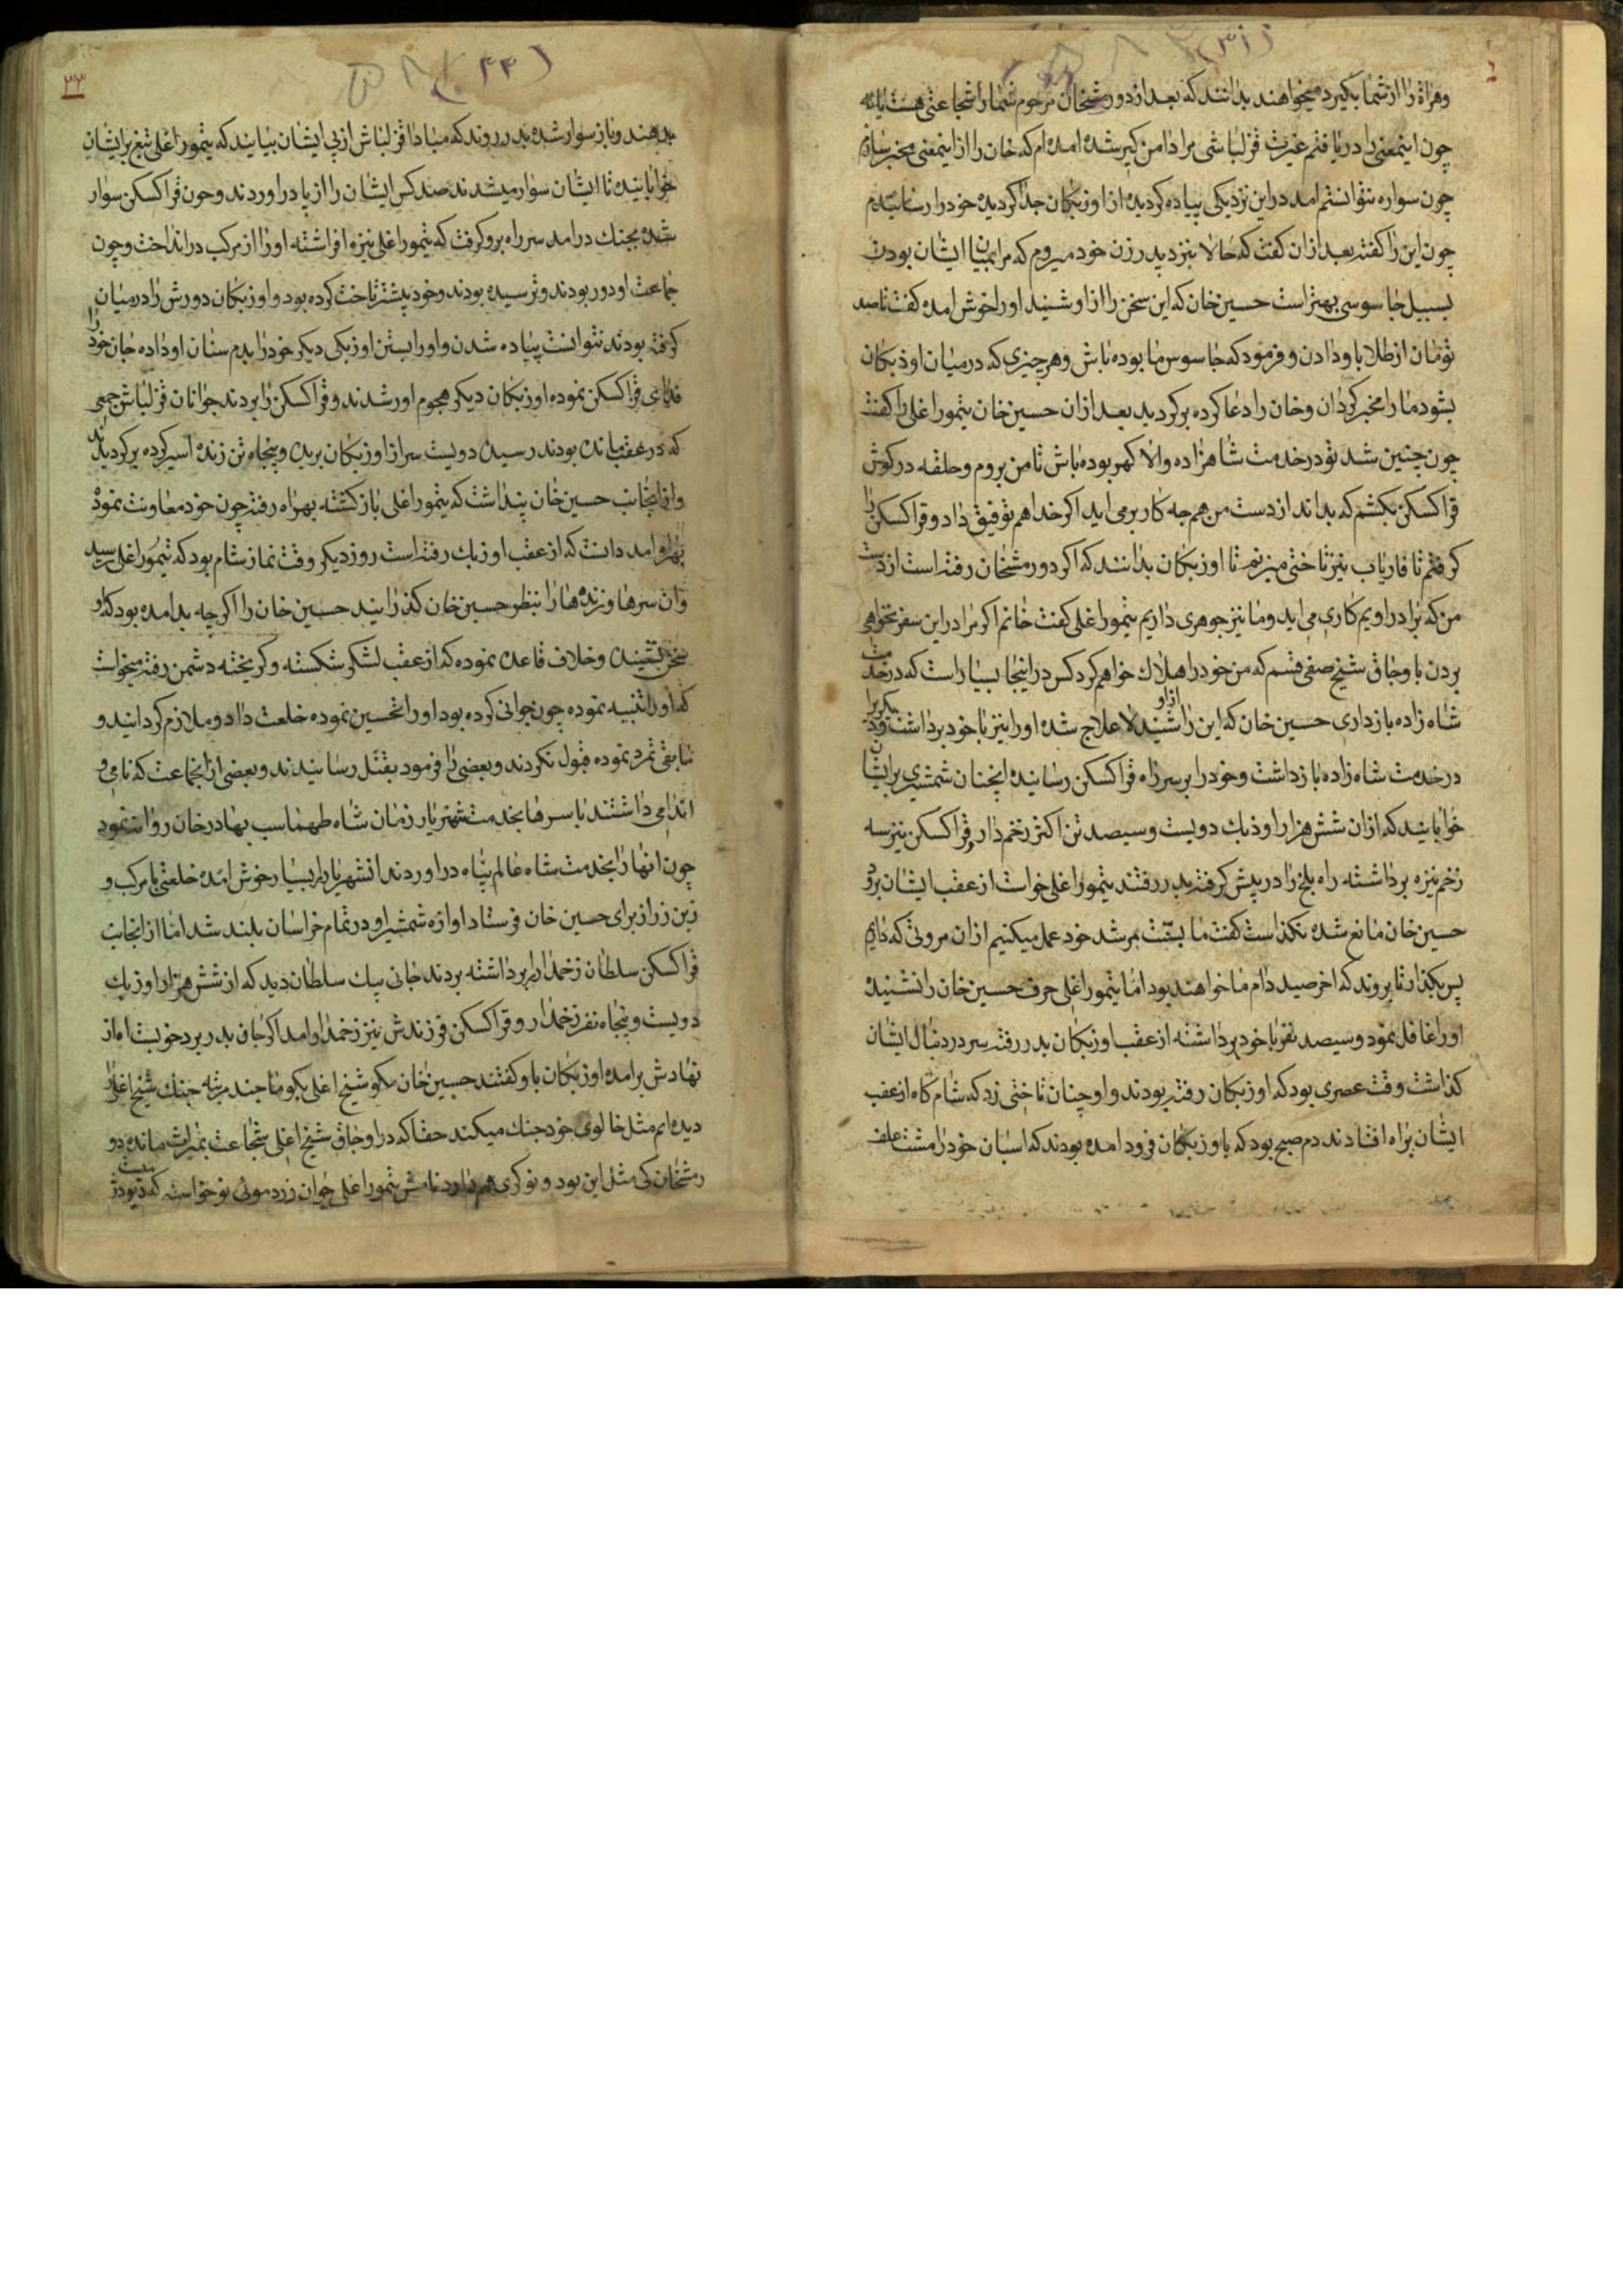 (۳۱)
وهراة را از شما بگیرد میخواهند بدانند که بعد از دورمشخان مرحوم شما را شجاعتی هست یا نه
چون اینمعنی را دریافتم غیرت قزلباشی مرا دامن کیر شده امده ام که خان را از اینمعنی مخبر سازم
چون سواره نتوانستم امد در این نزدیکی پیاده کردیده از اوزبکان جدا کردیده خود را رسانیدم
چون این را کفته بعد از ان کفت که حالا بنزد پدر زن خود میروم که مرا بمیان ایشان بودن
بسبیل جاسوسی بهتر است حسین خان که این سخن را از او شنید او را خوش امده کفت تا صد
تومان از طلا باو دادن و فرمود که جاسوس ما بوده باش و هر چیزی که در میان اوذبکان
بشود ما را مخبر کردان و خان را دعا کرده برکردید بعد از ان حسین خان یتمور اغلی را کفت
چون چنین شد تو در خدمت شاهزاده والا کهر بوده باش تا من بروم و حلقه در کوش
قراکسکن بکشم که بداند از دست من هم چه کار برمی اید اکر خدا هم توفیق داد و قراکسکن را
کرفتم تا فاریاب نیز تاختی میزنم تا اوزبکان بدانند که اکر دورمشخان رفته است از دست
من که برادر اویم کاری می اید و ما نیز جوهری داریم یتمور اغلی کفت خانم اکر مرا در این سفر نخواهی
بردن باوجاق شیخ صفی قسم که من خود را هلاك خواهم کرد کس در اینجا بسیار است که در خدمت
شاه زاده بازداری حسین خان که این را از او شنید لا علاج شده او را نیز با خود برداشت و دیکریرا
در خدمت شاه زاده بازداشت و خود را بر سر راه قراکسکن رسانیده انچنان شمشیری بر ایشان
خوابانید که از ان شش هزار اوذبك دویست و سیصد تن اکثر زخم دار و قراکسکن نیز سه
زخم نیزه برداشته راه بلخ را در پیش کرفته بدر رفتند یتمور اغلی خواست از عقب ایشان برود
حسین خان مانع شده نکذاست کفت ما بسنت مرشد خود عمل میکنیم از ان مروتی که داریم
پس بکذار تا بروند که اخر صید دام ما خواهند بود اما یتمور اغلی حرف حسین خان را نشنیده
او را غافل نمود و سیصد نفر با خود برداشته از عقب اوزبکان بدر رفته سر در دنبال ایشان
کذاشت وقت عصری بود که اوزبکان رفته بودند و او چنان تاختی زد که شام کاه از عقب
ایشان براه افتادند دم صبح بود که باوزبکان فرود امده بودند که اسبان خود را مشت علف
۳۳
(۴۴)
بدهند و باز سوار شده بدر روند که مبادا قزلباش از پی ایشان بیایند که یتمور اغلی تیغ بر ایشان
خوابانیده تا ایشان سوار میشدند صد کس ایشان را از پا در اوردند و چون قراکسکن سوار
شده بجنك درامد سر راه برو کرفت که یتمور اغلی نیزه افراشته او را از مرکب در انداخت و چون
جماعت او دور بودند و ترسیده بودند و خود پیشتر تاخت کرده بود و اوزبکان دورش را در میان
کرفته بودند نتوانست پیاده شدن و او را بستن اوزبکی دیکر خود را بدم سنان او داده جان خود را
فدای قراکسکن نموده اوزبکان دیکر هجوم اور شدند و قراکسکن را بردند جوانان قزلباش جمعی
که در عقب مانده بودند رسیده دویست سر از اوزبکان بریده و پنجاه تن زنده اسیر کرده برکردیدند
و از انجانب حسین خان پنداشت که یتمور اغلی بازکشته بهراه رفته چون خود معاونت نمود
بهراه امد دانست که از عقب اوزبك رفته است روز دیکر وقت نماز شام بود که یتمور اغلی رسید
و ان سرها و زنده ها را بنظر حسین خان کذرانید حسین خان را اکر چه بد امده بود که او
سخن نشنیده و خلاف قاعده نموده که از عقب لشکر شکسته و کریخته دشمن رفته میخواست
که او را تنبیه نموده چون جوانی کرده بود او را تحسین نموده خلعت داد و ملازم کردانید و
مابقی تمرد نموده قبول نکردند و بعضی را فرمود بقتل رسانیدند و بعضی از انجماعت که نامی و
اندامی داشتند با سرها بخدمت شهریار زمان شاه طهماسب بهادرخان روانه نمود
چون انها را بخدمت شاه عالم پناه در اوردند انشهریار را بسیار خوش امده خلعتی با مرکب و
زین زر از برای حسین خان فرستاد اوازه شمشیر او در تمام خراسان بلند شد اما از انجانب
قراکسکن سلطان زخمدار را برداشته بردند جانی بیك سلطان دید که از شش هزار اوزبك
دویست و پنجاه نفر زخمدار و قراکسکن فرزندش نیز زخمدار امد اکر جان بدر برد خوبست اه از
نهادش برامده اوزبکان باو کفتند حسین خان مکو شیخ اغلی بکو ما چند مرتبه جنك شیخ اغلی را
دیده ایم مثل خالوی خود جنك میکند حقا که در اوجاق شیخ اغلی شجاعت بمیراث مانده دو
رمشخان کی مثل این بود و نوکری هم دارد نامش یتمور اغلی جوان زرد موئی نو خواسته که